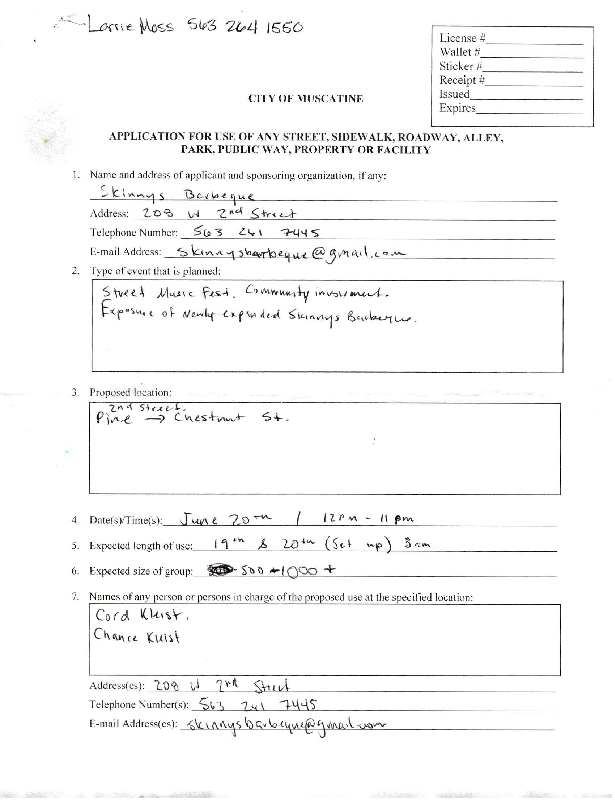 Lorrie Moss 563 264 1550
License #
Wallet #
Sticker #
Receipt #
Issued
Expires
CITY OF MUSCATINE
APPLICATION FOR USE OF ANY STREET, SIDEWALK, ROADWAY, ALLEY,
PARK, PUBLIC WAY, PROPERTY OR FACILITY
1. Name and address of applicant and sponsoring organization, if any:
Skinnys Barbeque
Address: 208 W 2nd Street
Telephone Number: 563 261 7445
E-mail Address: Skinnysbarbeque@gmail.com
2. Type of event that is planned:
Street Music Fest. Community
Exposure of Newly expanded Skinnys Barbeque.
3. Proposed location:
2nd Street.
Pine → Chestnut St.
4. Date(s)/Time(s): June 20th / 12pm - 11 pm
5. Expected length of use: 19th & 20th (Set up) 8am
6. Expected size of group: 500 - 1000 +
7. Names of any person or persons in charge of the proposed use at the specified location:
Cord Kleist.
Chance Kleist
Address(es): 208 W 2nd Street
Telephone Number(s): 563 261 7445
E-mail Address(es): skinnysbarbeque@gmail.com